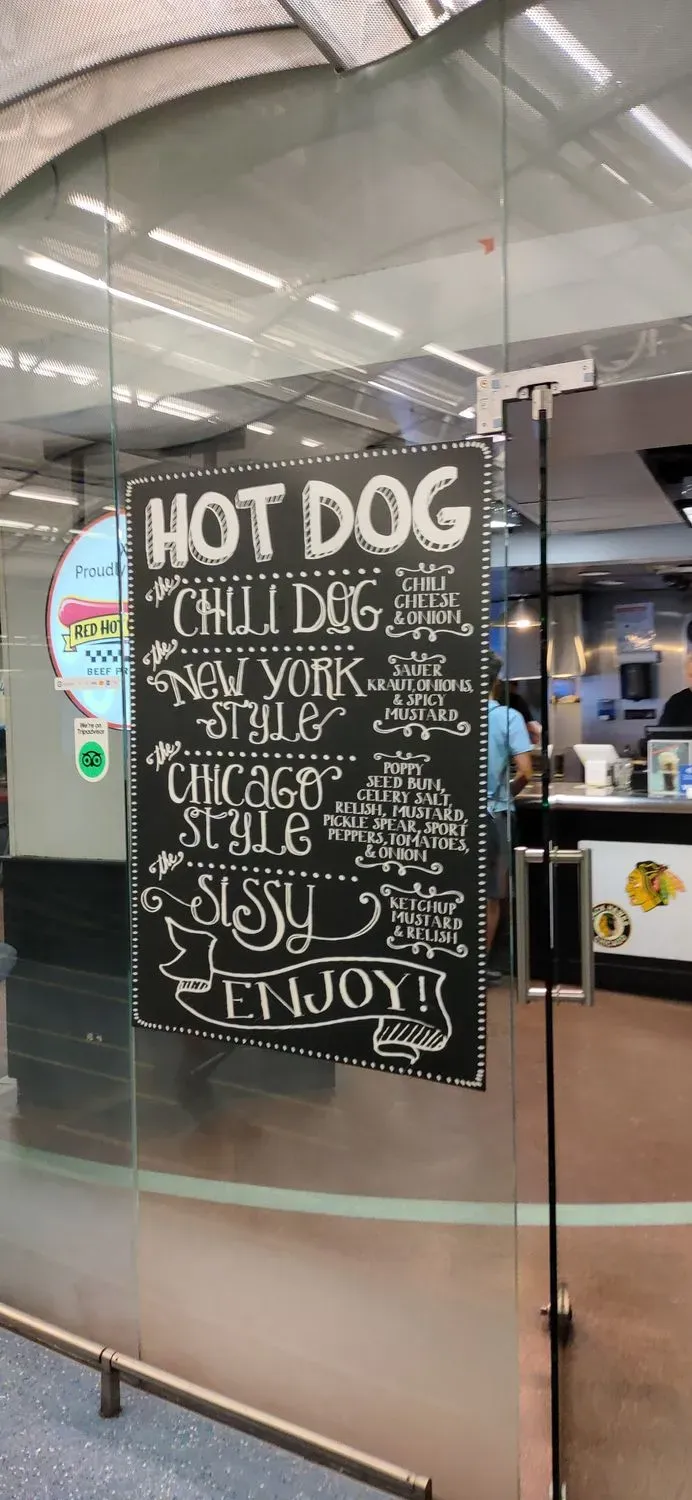 HOT DOG
the
CHILI DOG
CHILI
CHEESE
& ONION
the
NEW YORK
STYLE
SAUER
KRAUT, ONIONS,
& SPICY
MUSTARD
the
CHICAGO
STYLE
POPPY
SEED BUN,
CELERY SALT,
RELISH, MUSTARD,
PICKLE SPEAR, SPORT
PEPPERS, TOMATOES,
& ONION
the
SISSY
KETCHUP
MUSTARD
& RELISH
ENJOY!
Proudly
RED HOT
BEEF
We're on
Tripadvisor
CHICAGO